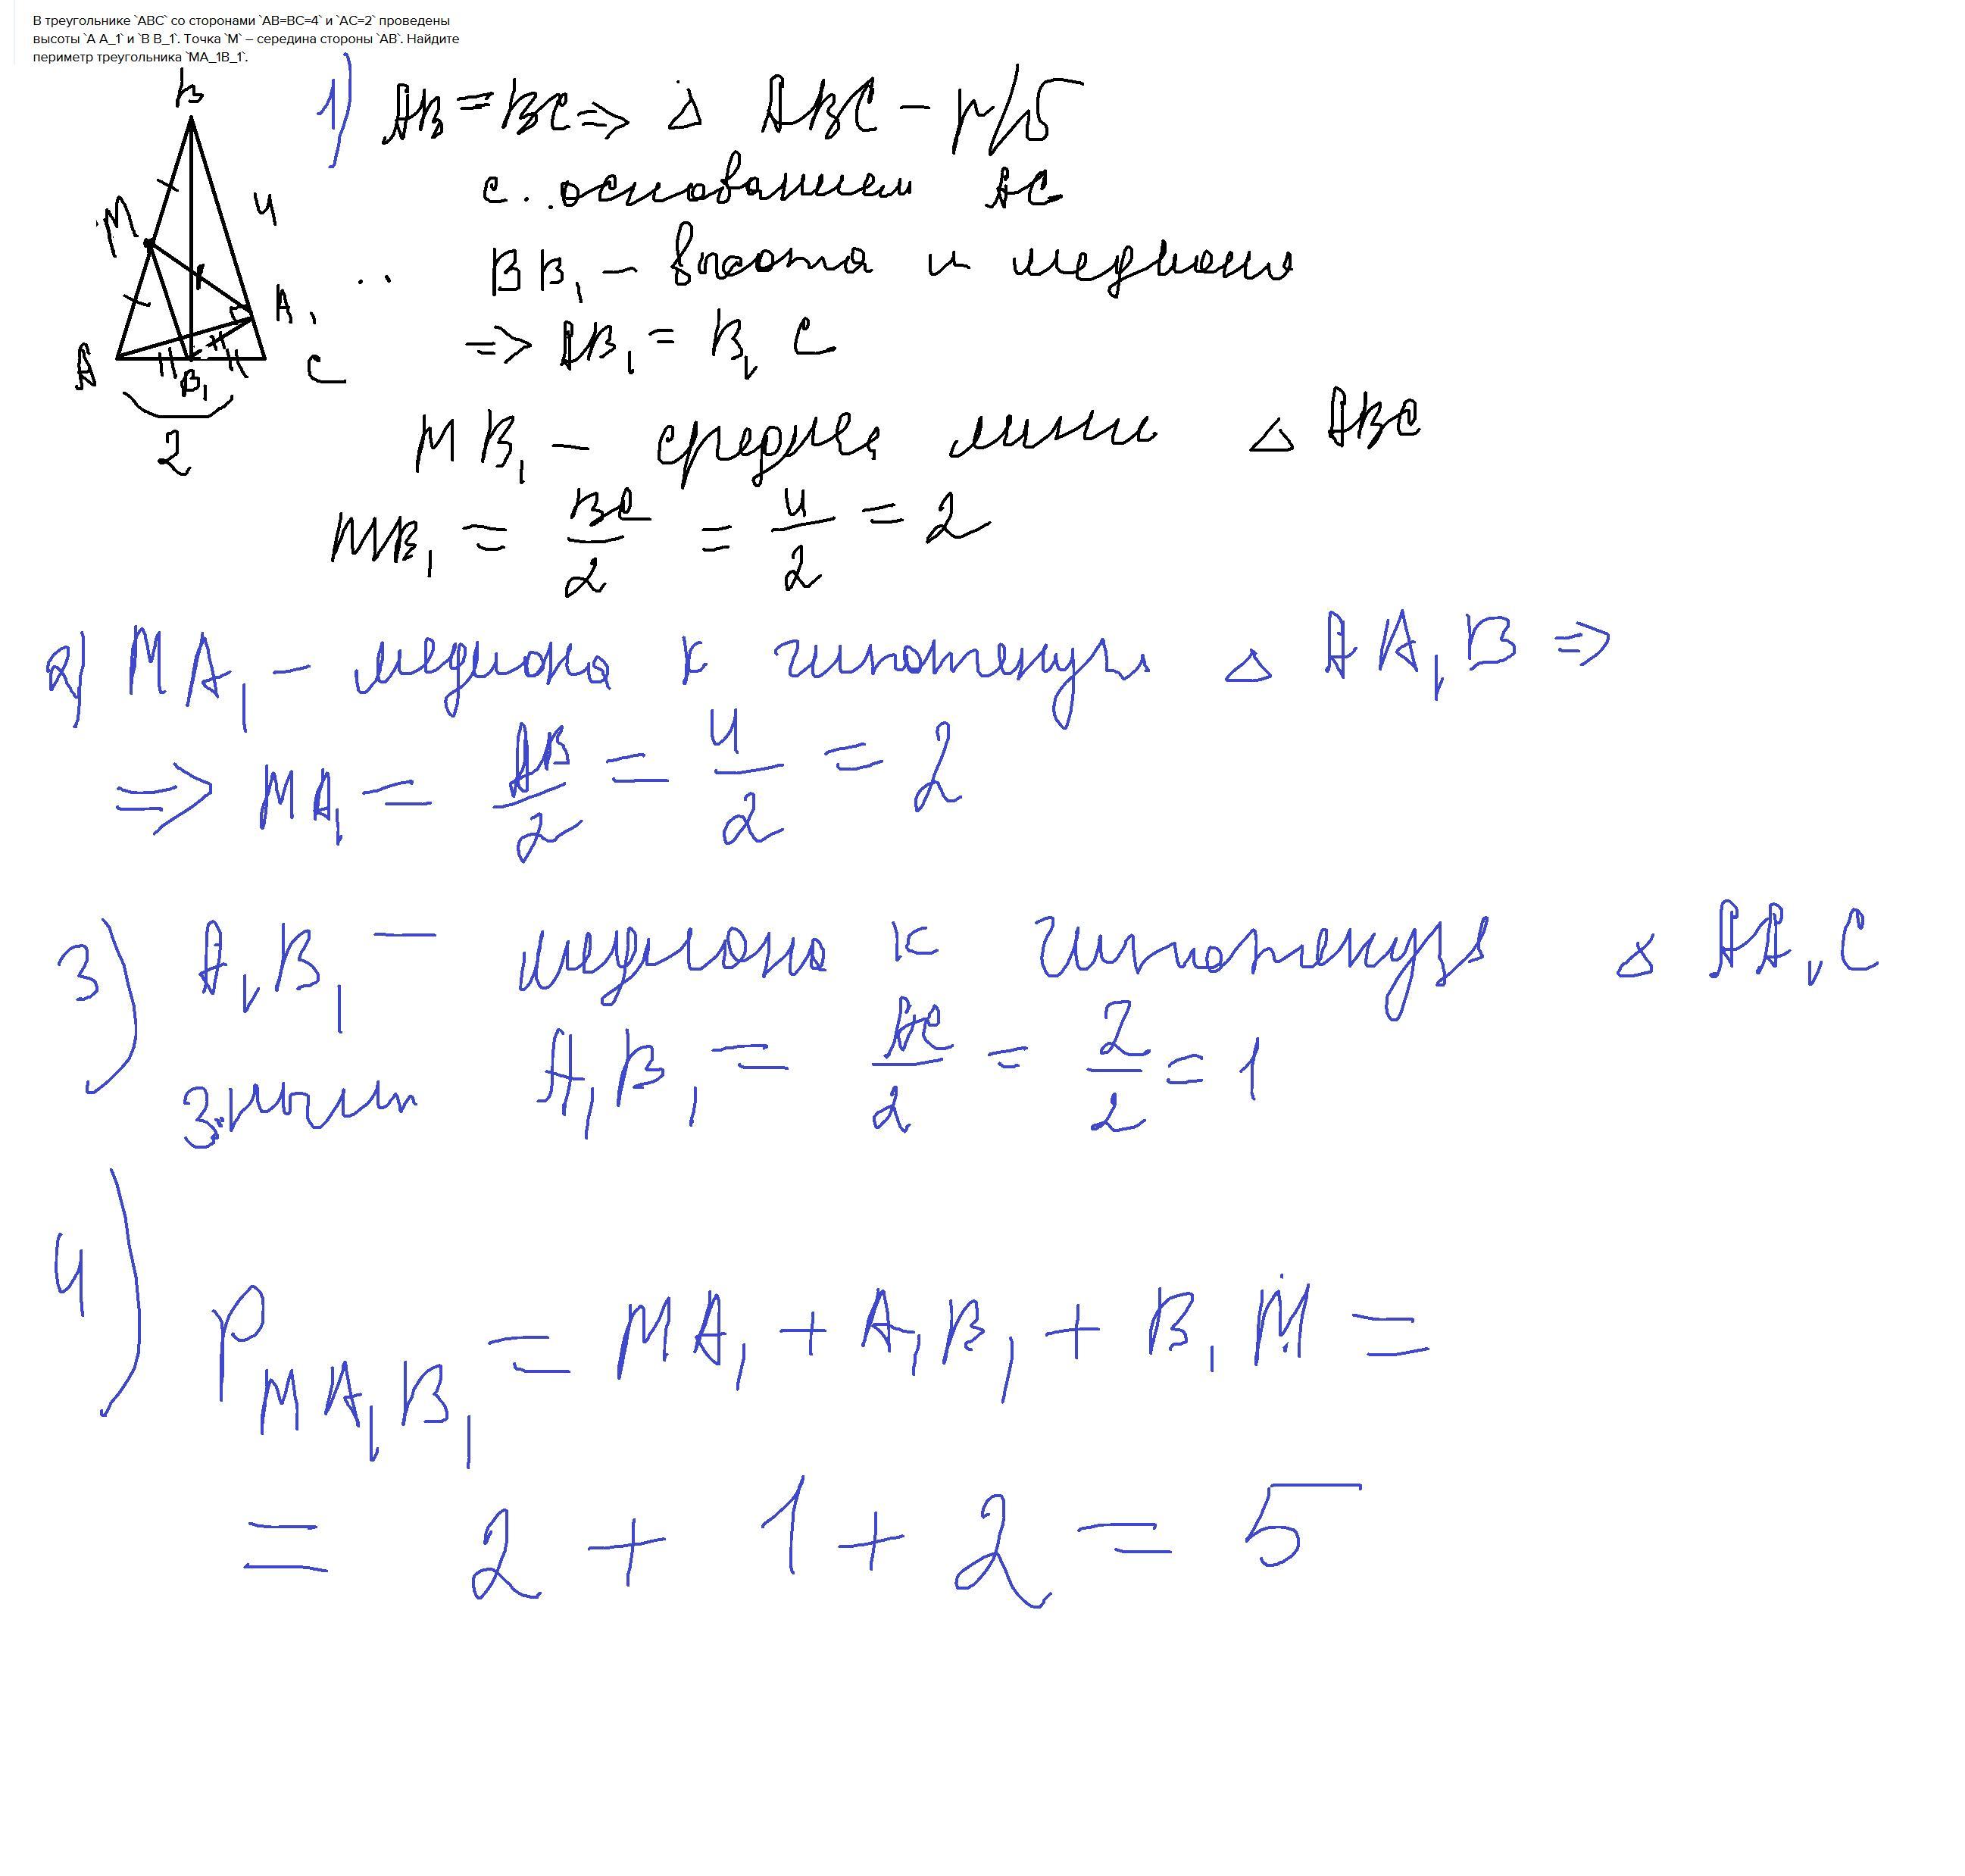 В треугольнике `ABC` со сторонами `AB=BC=4` и `AC=2` проведены
высоты `A A_1` и `B B_1`. Точка `M` – середина стороны `AB`. Найдите
периметр треугольника `MA_1B_1`.
B
M
4
A₁
A
B₁
C
2
1) AB = BC => △ ABC - р/б
с основанием AC
BB₁ - высота и медиана
=> AB₁ = B₁C
MB₁ - средняя линия △ ABC
MB₁ = BC/2 = 4/2 = 2
2) MA₁ - медиана к гипотенузе △ AA₁B =>
=> MA₁ = AB/2 = 4/2 = 2
3) A₁B₁ - медиана к гипотенузе △ AA₁C
Значит A₁B₁ = AC/2 = 2/2 = 1
4) P MA₁B₁ = MA₁ + A₁B₁ + B₁M =
= 2 + 1 + 2 = 5